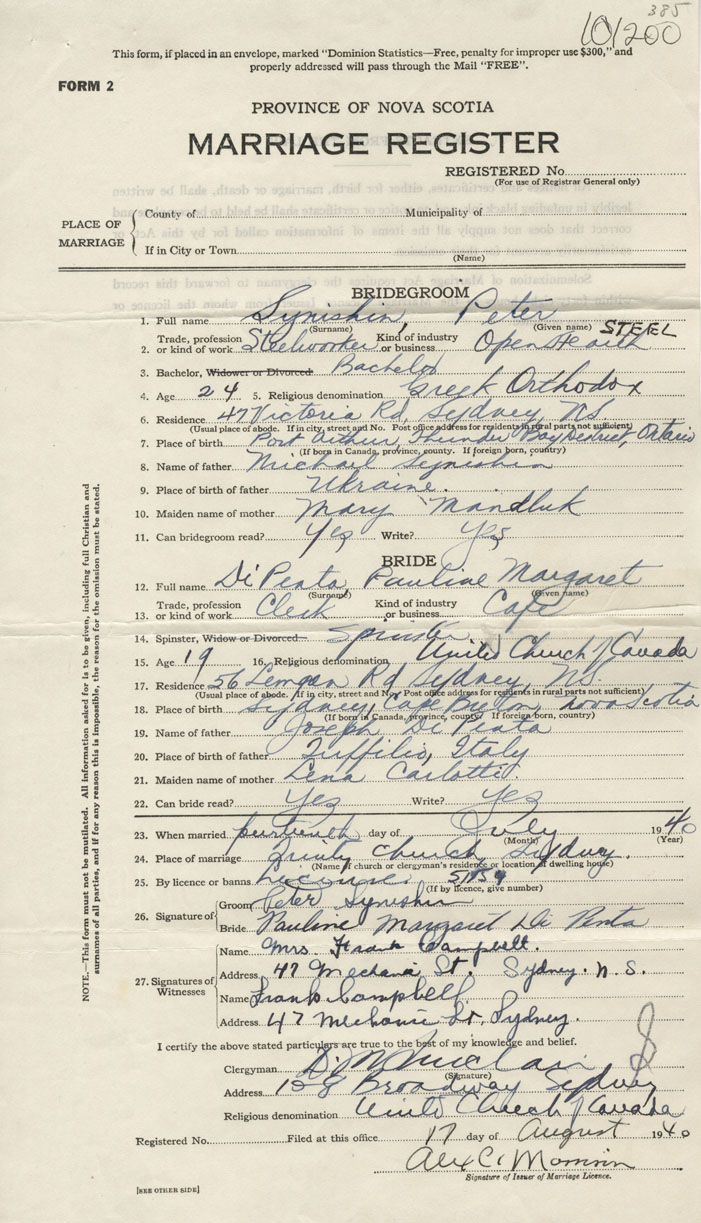 385
101200
This form, if placed in an envelope, marked "Dominion Statistics—Free, penalty for improper use $300," and
properly addressed will pass through the Mail "FREE".
FORM 2
PROVINCE OF NOVA SCOTIA
MARRIAGE REGISTER
REGISTERED No.
(For use of Registrar General only)
PLACE OF MARRIAGE
County of Municipality of
If in City or Town
(Name)
BRIDEGROOM
1. Full name Synishin, Peter
(Surname) (Given name)
STEEL
2. Trade, profession or kind of work Steelworker Kind of industry or business Open Hearth
3. Bachelor, Widower or Divorced Bachelor
4. Age 24 5. Religious denomination Greek Orthodox
6. Residence 47 Victoria Rd, Sydney N.S.
(Usual place of abode. If in city, street and No. Post office address for residents in rural parts not sufficient)
7. Place of birth Port Arthur, Thunder Bay District, Ontario
(If born in Canada, province, county. If foreign born, country)
8. Name of father Michael Synishin
9. Place of birth of father Ukraine.
10. Maiden name of mother Mary Mandluk
11. Can bridegroom read? Yes Write? Yes
BRIDE
12. Full name Di Penta, Pauline Margaret
(Surname) (Given name)
13. Trade, profession or kind of work Clerk Kind of industry or business Cafe
14. Spinster, Widow or Divorced Spinster
15. Age 19 16. Religious denomination United Church of Canada
17. Residence 56 Rd, Sydney, N.S.
(Usual place of abode. If in city, street and No. Post office address for residents in rural parts not sufficient)
18. Place of birth Sydney, Cape Breton, Nova Scotia
(If born in Canada, province, county. If foreign born, country)
19. Name of father Joseph Di Penta
20. Place of birth of father Italy
21. Maiden name of mother Lena
22. Can bride read? Yes Write? Yes
23. When married day of July 1940
(Month) (Year)
24. Place of marriage Trinity Church, Sydney.
(Name of church or clergyman's residence or location of dwelling house)
25. By licence or banns License.
(If by licence, give number)
26. Signature of
Groom Peter Synishin
Bride Pauline Margaret Di Penta
27. Signatures of Witnesses
Name Mrs. Frank Campbell.
Address 47 Mechanic St. Sydney. N.S.
Name Frank Campbell
Address 47 Mechanic St. Sydney.
I certify the above stated particulars are true to the best of my knowledge and belief.
Clergyman
(Signature)
Address 128 Broadway Sydney
Religious denomination United Church of Canada
Registered No. Filed at this office 17 day of August 1940
Alex C.
Signature of Issuer of Marriage Licence.
[SEE OTHER SIDE]
NOTE.—This form must not be mutilated. All information asked for is to be given, including full Christian and
surnames of all parties, and if for any reason this is impossible, the reason for the omission must be stated.